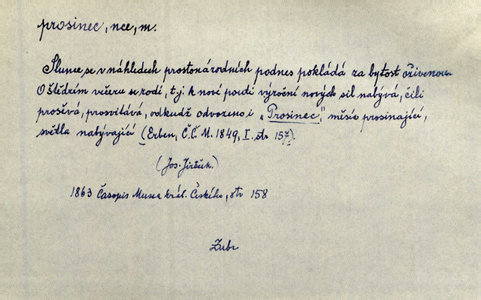 prosinec, nce, m.
Slunce se v náhledech prostonárodních podnes pokládá za bytost oživenou.
O štědrém večeru se rodí, t.j. k nové pouti výroční nových sil nabývá, čili
prosívá, prosvítá, odkudž odvozeno i „Prosinec," měsíc prosinající,
světla nabývající (Erben, Č.Č.M. 1849, I. str 157).
(Jos. Jireček.)
1863 Časopis Musea král. Českého, str 158
Zubr